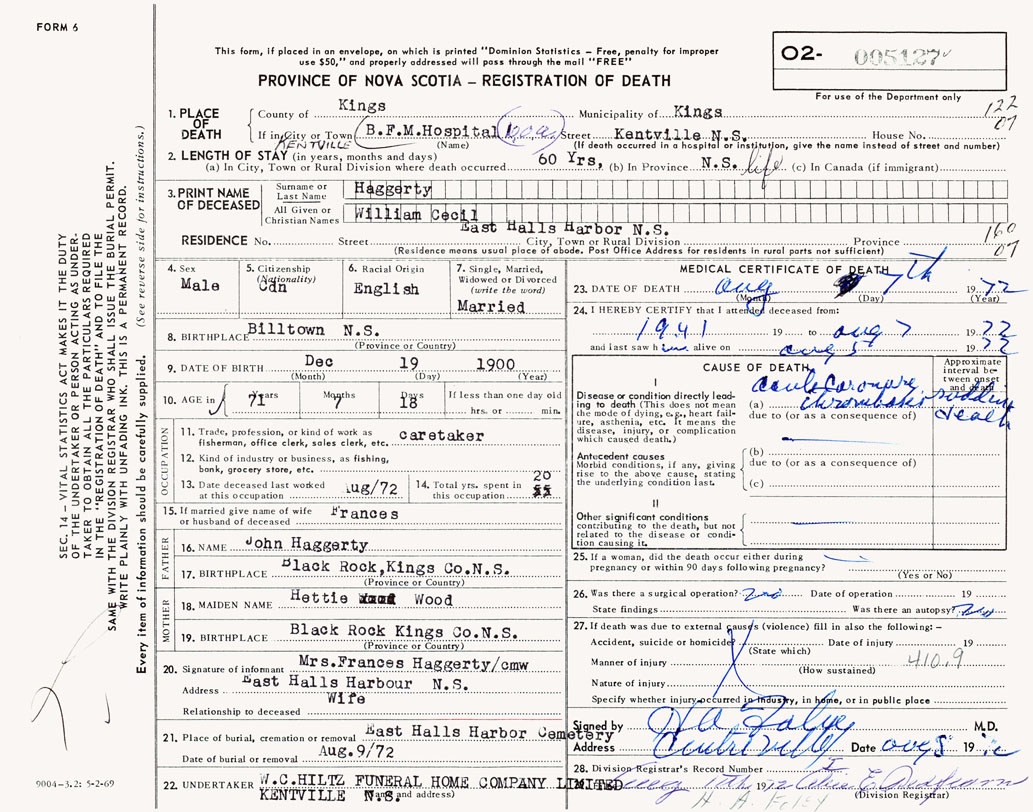 FORM 6
This form, if placed in an envelope, on which is printed "Dominion Statistics – Free, penalty for improper
use $50," and properly addressed will pass through the mail "FREE"
PROVINCE OF NOVA SCOTIA – REGISTRATION OF DEATH
O2- 005127
For use of the Department only
122
07
1. PLACE OF DEATH
County of Kings Municipality of Kings
If in City or Town B.F.M.Hospital D.O.A. Street Kentville N.S. House No.
KENTVILLE (Name) (If death occurred in a hospital or institution, give the name instead of street and number)
2. LENGTH OF STAY (in years, months and days)
(a) In City, Town or Rural Division where death occurred 60 Yrs, (b) In Province N.S. life (c) In Canada (if immigrant)
3. PRINT NAME OF DECEASED
Surname or Last Name Haggerty
All Given or Christian Names William Cecil
East Halls Harbor N.S.
160
07
RESIDENCE No. Street City, Town or Rural Division Province
(Residence means usual place of abode. Post Office Address for residents in rural parts not sufficient)
4. Sex
Male
5. Citizenship
(Nationality)
Cdn
6. Racial Origin
English
7. Single, Married,
Widowed or Divorced
(write the word)
Married
8. BIRTHPLACE Billtown N.S.
(Province or Country)
9. DATE OF BIRTH Dec 19 1900
(Month) (Day) (Year)
10. AGE in Years Months Days If less than one day old
71 7 18 hrs. or min.
OCCUPATION
11. Trade, profession, or kind of work as
fisherman, office clerk, sales clerk, etc. caretaker
12. Kind of industry or business, as fishing,
bank, grocery store, etc.
13. Date deceased last worked
at this occupation Aug/72
14. Total yrs. spent in
this occupation 20
15. If married give name of wife
or husband of deceased Frances
FATHER
16. NAME John Haggerty
17. BIRTHPLACE Black Rock,Kings Co.N.S.
(Province or Country)
MOTHER
18. MAIDEN NAME Hettie Wood
19. BIRTHPLACE Black Rock Kings Co.N.S.
(Province or Country)
20. Signature of informant Mrs.Frances Haggerty/cmw
Address East Halls Harbour N.S.
Relationship to deceased Wife
21. Place of burial, cremation or removal East Halls Harbor Cemetery
Date of burial or removal Aug.9/72
22. UNDERTAKER W.C.HILTZ FUNERAL HOME COMPANY LIMITED
KENTVILLE N.S.
(Name and address)
MEDICAL CERTIFICATE OF DEATH
23. DATE OF DEATH Aug 7th 1972
(Month) (Day) (Year)
24. I HEREBY CERTIFY that I attended deceased from:
1941 19 to Aug 7 1972
and last saw him alive on Aug 5 1972
CAUSE OF DEATH
Approximate
interval be-
tween onset
and death
I
Disease or condition directly lead-
ing to death (This does not mean
the mode of dying, e.g., heart fail-
ure, asthenia, etc. It means the
disease, injury, or complication
which caused death.)
(a) acute coronary thrombosis
due to (or as a consequence of)
sudden death
Antecedent causes
Morbid conditions, if any, giving
rise to the above cause, stating
the underlying condition last.
(b)
due to (or as a consequence of)
(c)
II
Other significant conditions
contributing to the death, but not
related to the disease or condi-
tion causing it.
25. If a woman, did the death occur either during
pregnancy or within 90 days following pregnancy?
(Yes or No)
26. Was there a surgical operation? No Date of operation 19
State findings Was there an autopsy? No
27. If death was due to external causes (violence) fill in also the following: –
Accident, suicide or homicide Date of injury 19
(State which)
Manner of injury 410.9
(How sustained)
Nature of injury
Specify whether injury occurred in industry, in home, or in public place
Signed by M.D.
Address Centreville Date Aug 8 19
28. Division Registrar's Record Number
19
(Division Registrar)
SEC. 14 – VITAL STATISTICS ACT MAKES IT THE DUTY
OF THE UNDERTAKER OR PERSON ACTING AS UNDER-
TAKER TO OBTAIN ALL THE PARTICULARS REQUIRED
IN THE "REGISTRATION OF DEATH" AND FILE THE
SAME WITH THE DIVISION REGISTRAR WHO SHALL ISSUE THE BURIAL PERMIT.
WRITE PLAINLY WITH UNFADING INK. THIS IS A PERMANENT RECORD.
Every item of information should be carefully supplied. (See reverse side for instructions.)
9004-3.2: 5-2-69